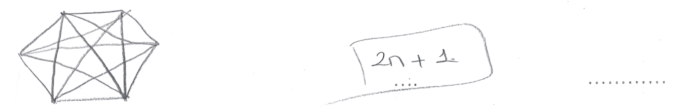 2n + 1